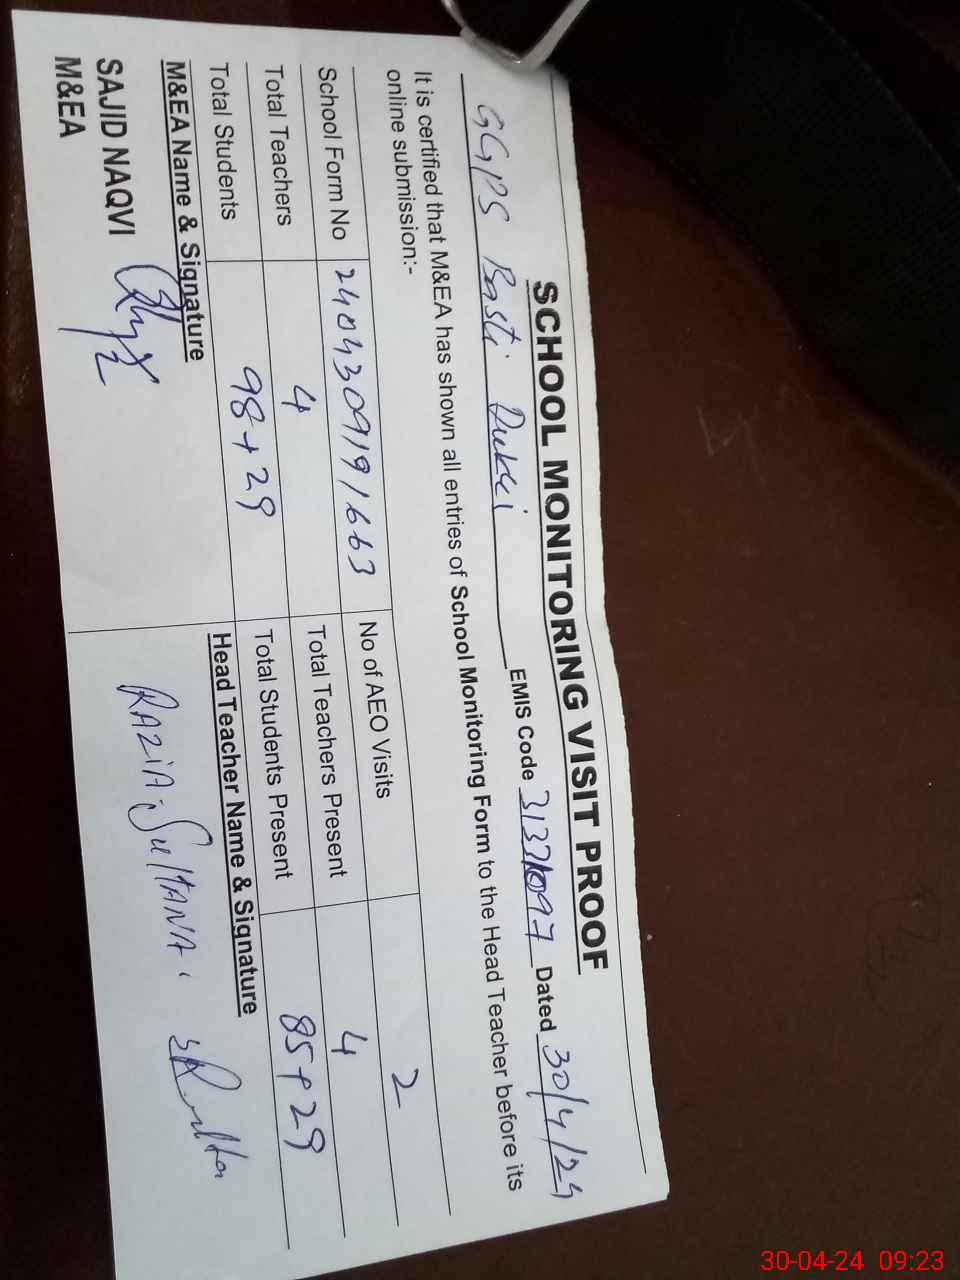 SCHOOL MONITORING VISIT PROOF
GGPS Basti Dukki EMIS Code 31371097 Dated 30/4/24
It is certified that M&EA has shown all entries of School Monitoring Form to the Head Teacher before its
online submission:-
School Form No 2404309191663 No of AEO Visits 2
Total Teachers 4 Total Teachers Present 4
Total Students 98+29 Total Students Present 85+29
M&EA Name & Signature Head Teacher Name & Signature
SAJID NAQVI RAZIA SULTANA
M&EA
30-04-24 09:23